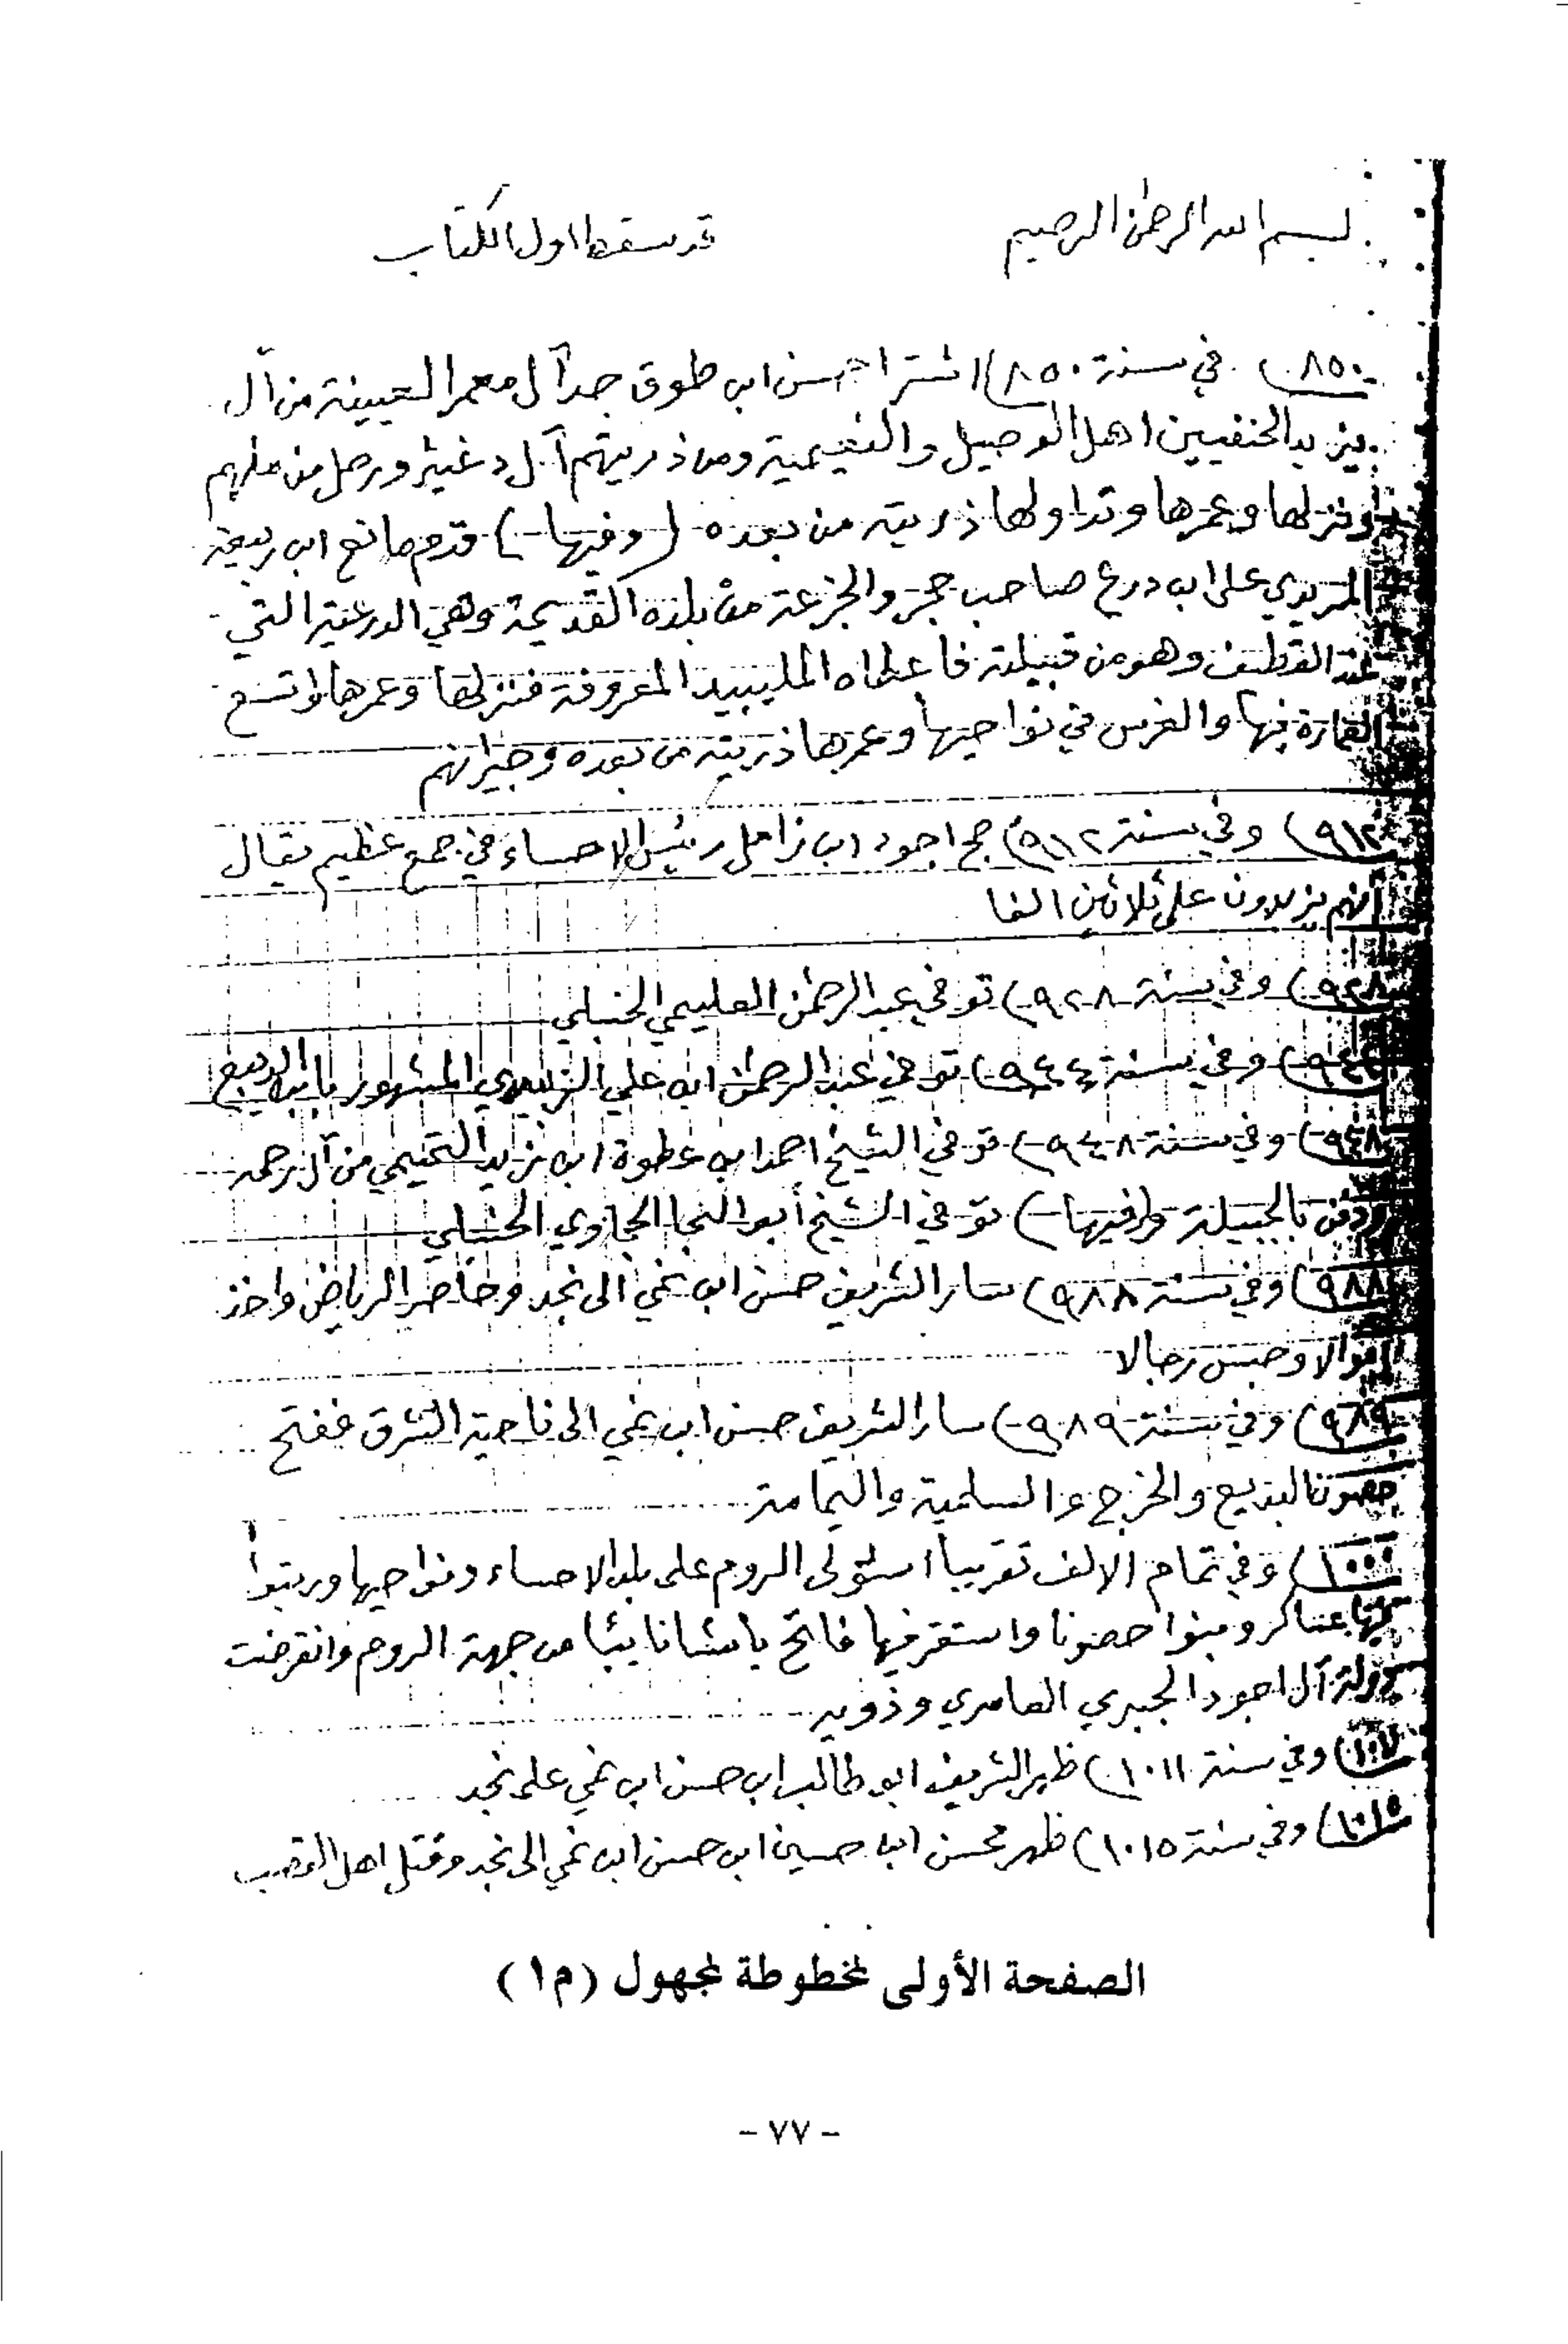 بسم الله الرحمن الرحيم قد سقط اول الكتاب
٨٥٠) في سنة ٨٥٠) اشترا حسن ابن طوق جد آل معمر العيينة من آل
يزيد الحنفيين اهل الوصيل والنعيمية ومن ذريتهم آل دغيثر ورحل من ملهم
ونزلها وعمرها وتداولها ذريته من بعده (وفيها) قدم مانع ابن ربيعة
المريدي على ابن درع صاحب حجر والجزعة من بلده القديمة وهي الدرعية التي
عند القطيف وهو من قبيلته فاعطاه المليبيد المعروفة فنزلها وعمرها واتسع
العمارة فيها والغرس في نواحيها وعمرها ذريته من بعده وجيرانهم
٩١٢) وفي سنة ٩١٢) حج اجود ابن زامل رئيس الاحساء في جمع عظيم يقال
انهم يزيدون على ثلاثين الفا
٩٢٨) وفي سنة ٩٢٨) توفي عبد الرحمن العليمي الحنبلي
٩٤٤) وفي سنة ٩٤٤) توفي عبد الرحمن ابن علي الزبيدي المشهور بابن الديبع
٩٤٨) وفي سنة ٩٤٨) توفي الشيخ احمد ابن عطوة ابن زيد التميمي من آل رحمه
ودفن بالجبيلة وفيها) توفي الشيخ أبو النجا الحجاوي الحنبلي
٩٨٨) وفي سنة ٩٨٨) سار الشريف حسن ابن نمي الى نجد وحاصر الرياض واخذ
اموالا وحبس رجالا
٩٨٩) وفي سنة ٩٨٩) سار الشريف حسن ابن نمي الى ناحية الشرق ففتح
حصون البديع والخرج والسلمية واليمامة
١٠٠٠) وفي تمام الالف تقريبا استولى الروم على بلد الاحساء ونواحيها ورتبوا
فيها عساكر وبنوا حصونا واستقر فيها فاتح باشا نايبا من جهة الروم وانقرضت
دولة آل اجود الجبري العامري وذويه
وفي سنة ١٠١١) ظهر الشريف ابو طالب ابن حسن ابن نمي على نجد
١٠١٥) وفي سنة ١٠١٥) ظهر محسن ابن حسين ابن حسن ابن نمي الى نجد وقتل اهل القصب
الصفحة الأولى لمخطوطة لمجهول (م١)
- ٧٧ -